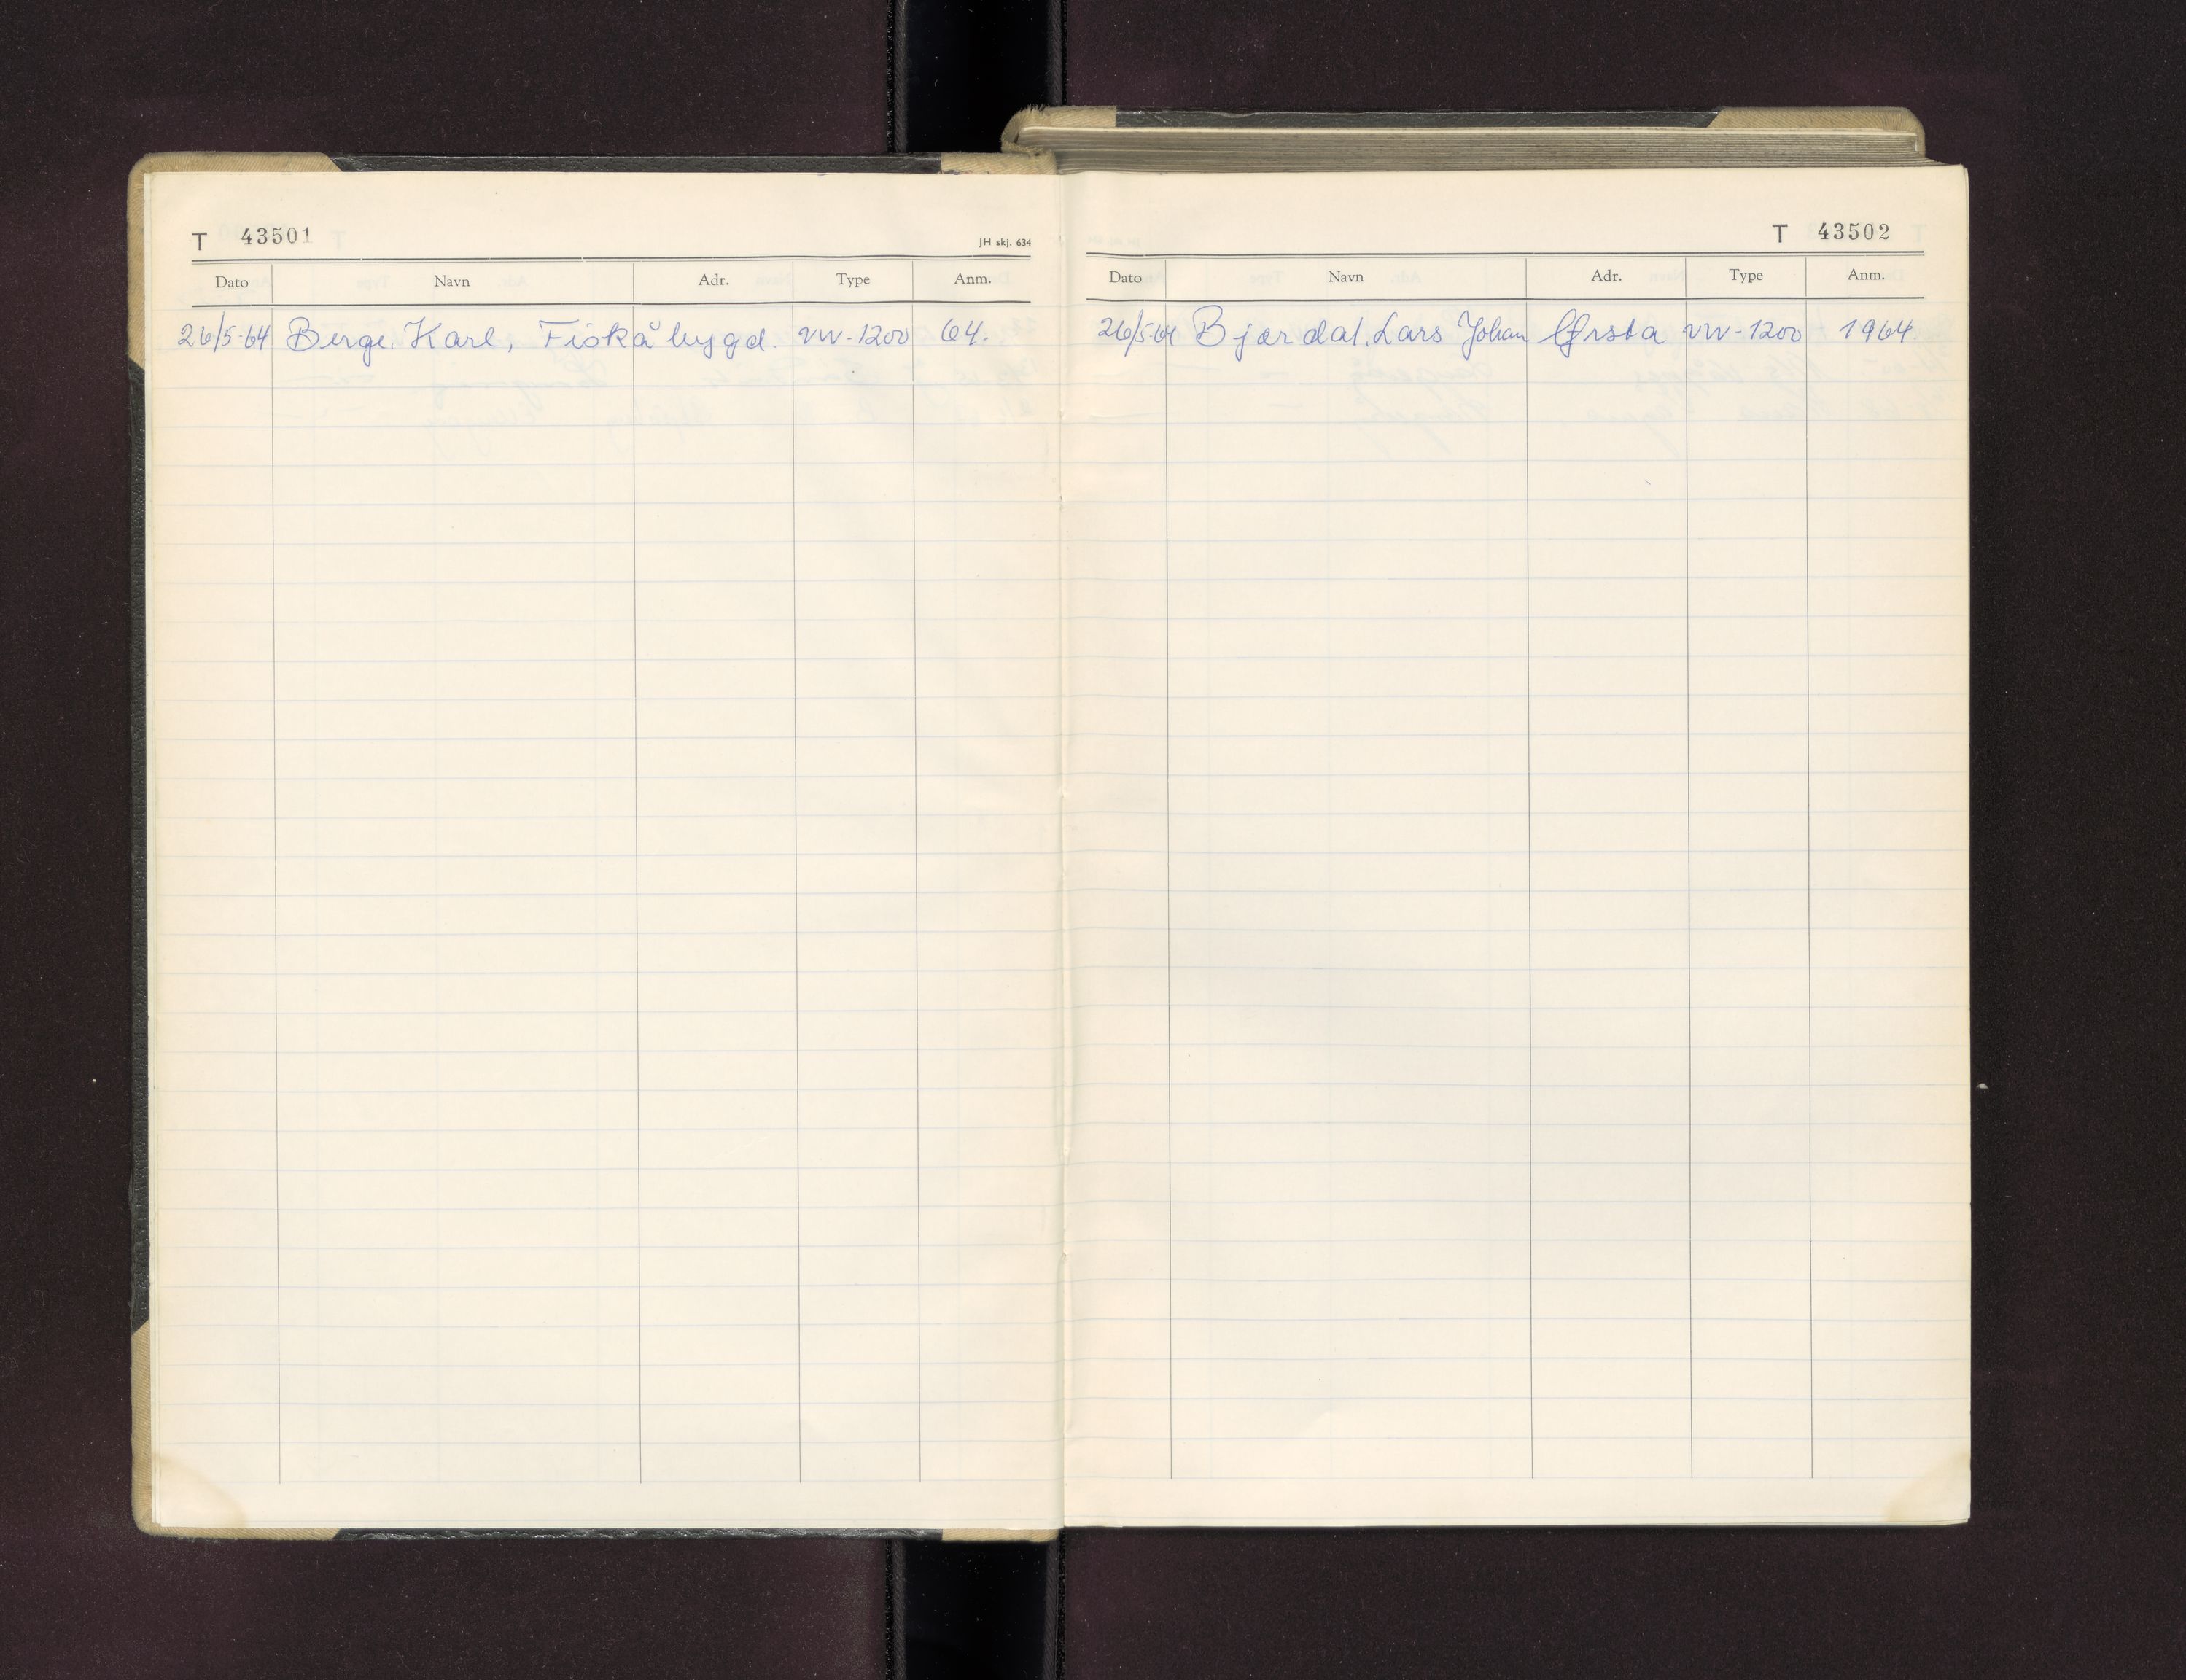 T 43501
JH skj. 634
Dato Navn Adr. Type Anm.
26/5-64 Berge, Karl, Fiskåbygd. VW-1200 64.
T 43502
Dato Navn Adr. Type Anm.
26/5-64 Bjørdal, Lars Johan Ørsta VW-1200 1964.